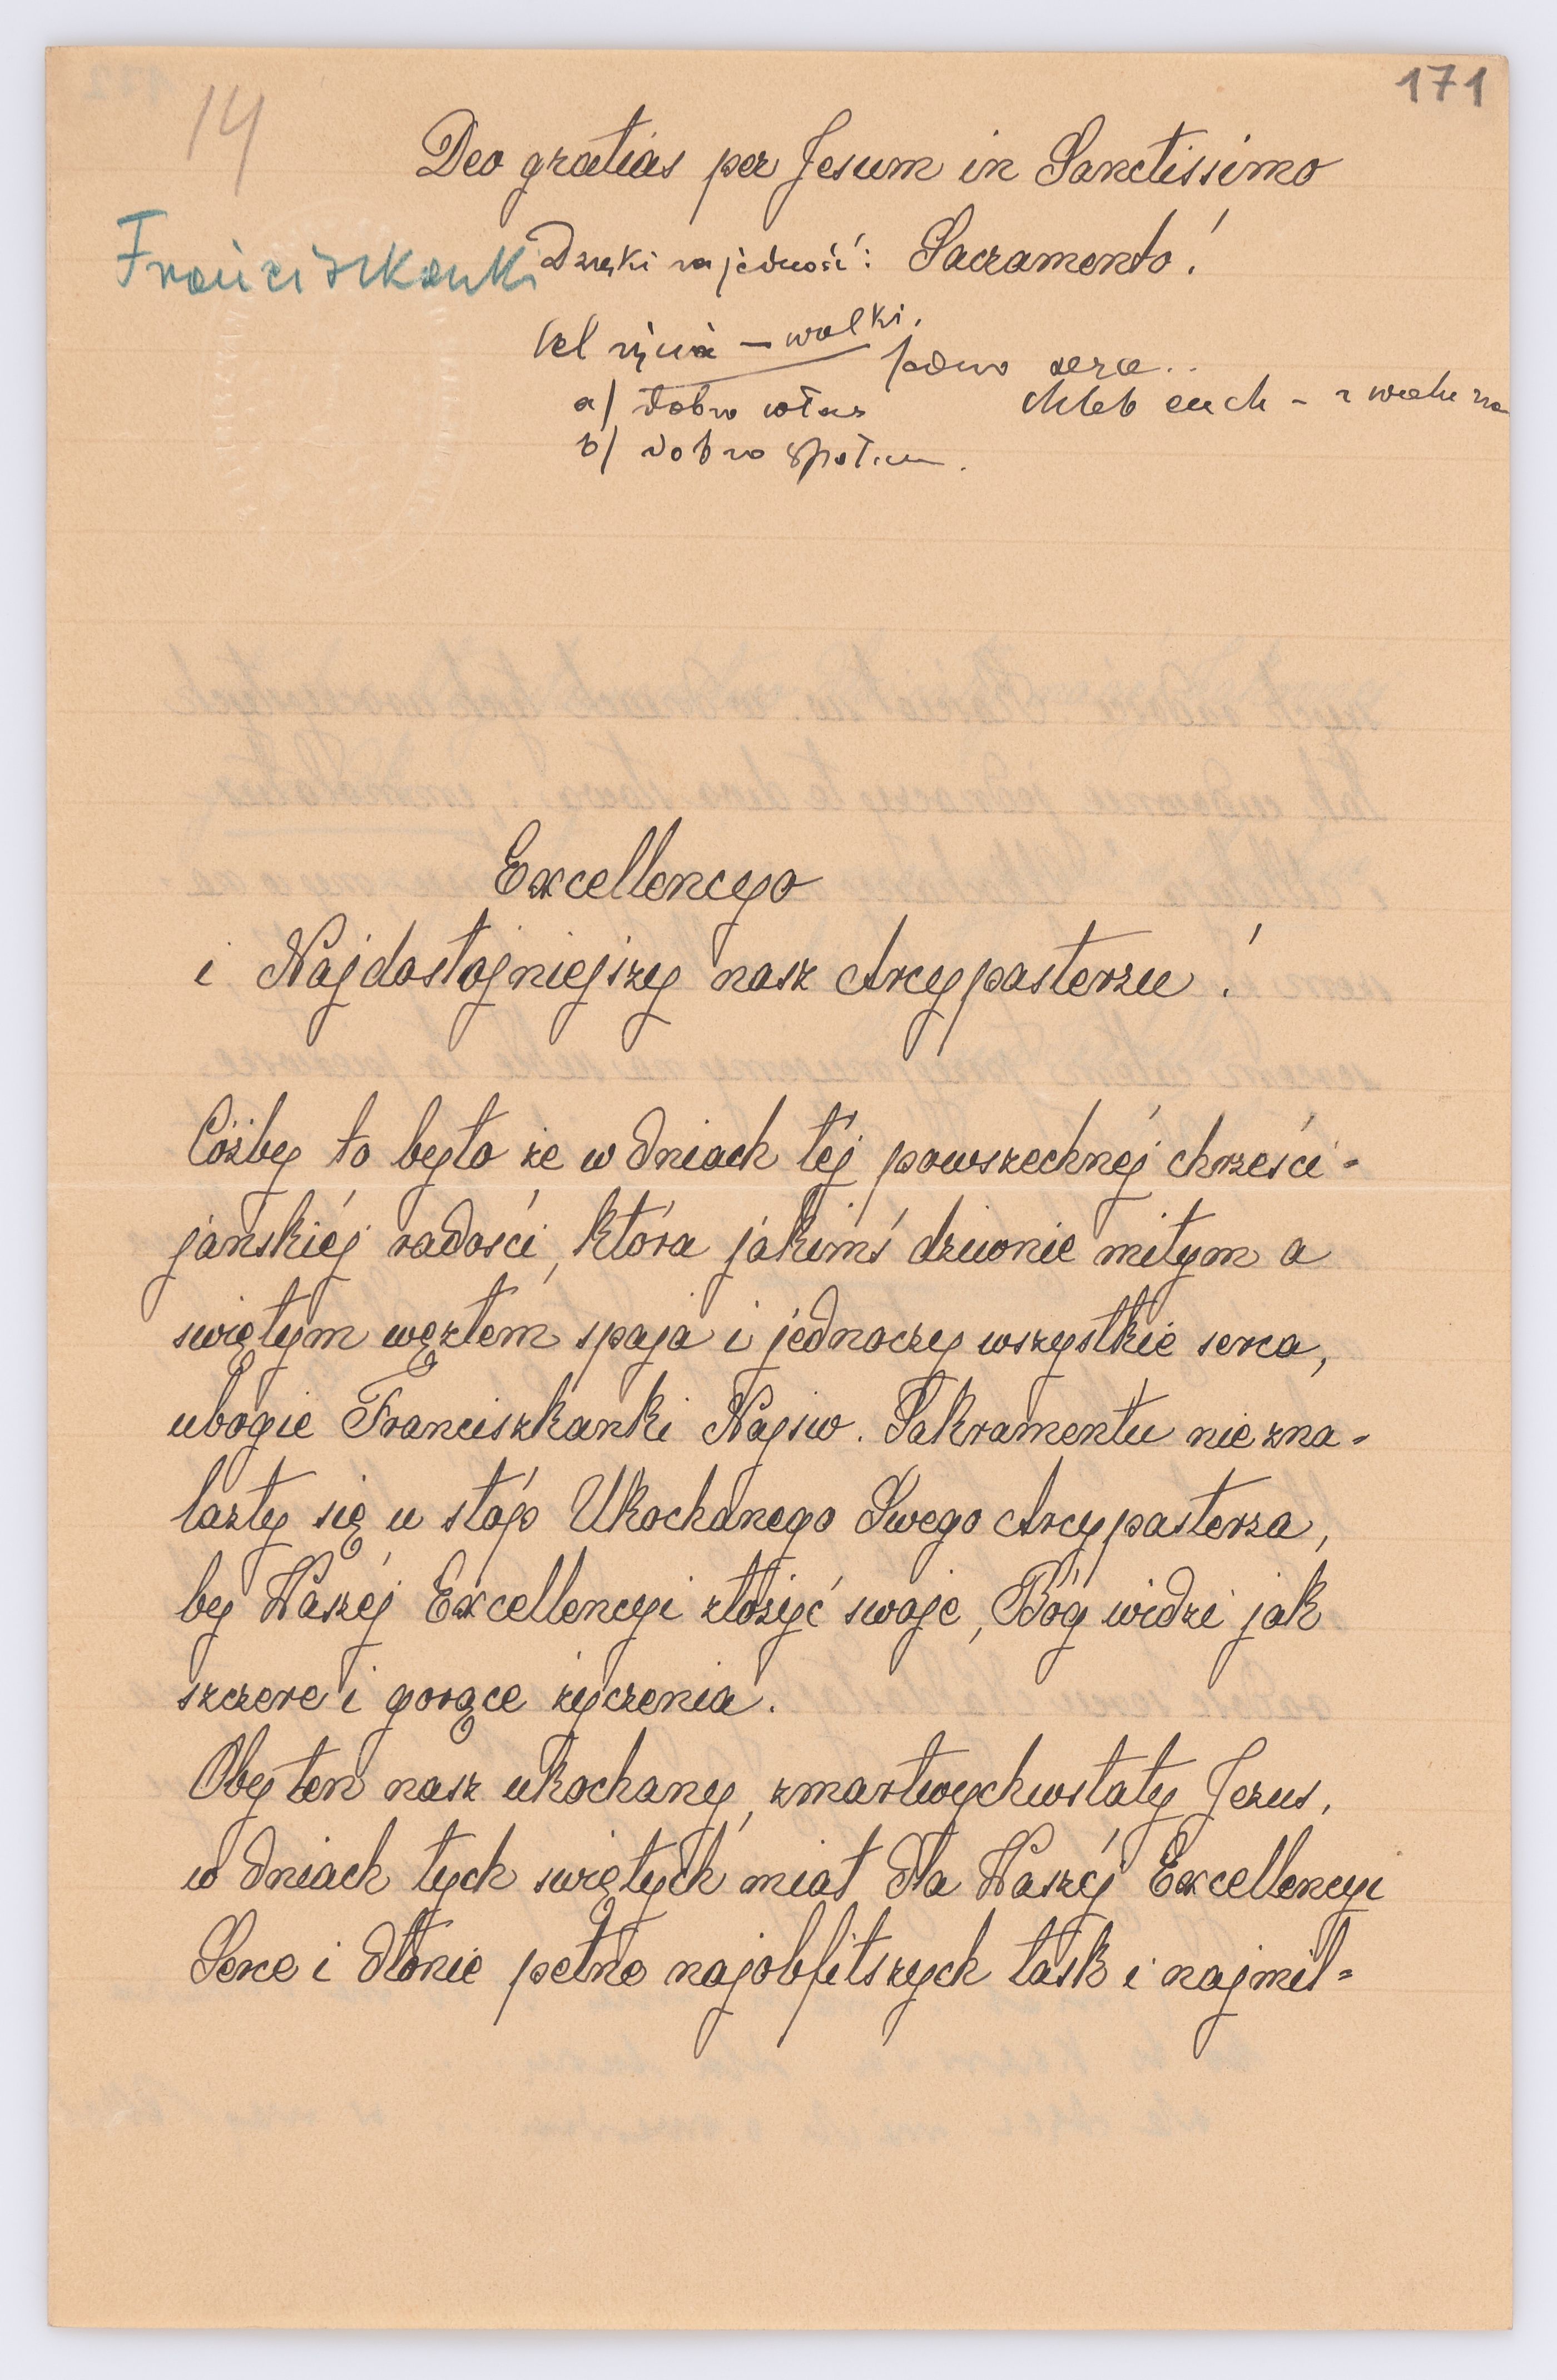 171
14
Deo gratias per Jesum in Sanctissimo
Sacramento!
Franciszkanki
Dzięki za jedność:
Cel życia – walki.
jedno serce..
a) dobro włas
chleb euch – z wielu
b) dobro społecn.
Excellencyo
i Najdostojniejszy nasz Arcypasterzu!
Cóżby to było że w dniach téj powszechnéj chrześci-
jańskiéj radości, która jakimś dziwnie miłym a
świętym węzłem spaja i jednoczy wszystkie serca,
ubogie Franciszkanki Najśw. Sakramentu nie zna-
lazły się u stóp Ukochanego Swego Arcypasterza,
by Waszéj Excellencyi złożyć swoje, Bóg widzi jak
szczere i gorące życzenia.
Oby ten nasz ukochany, zmartwychwstały Jezus,
w dniach tych świętych miał dla Waszéj Excellencyi
Serce i dłonie pełne najobfitszych łask i najmil-